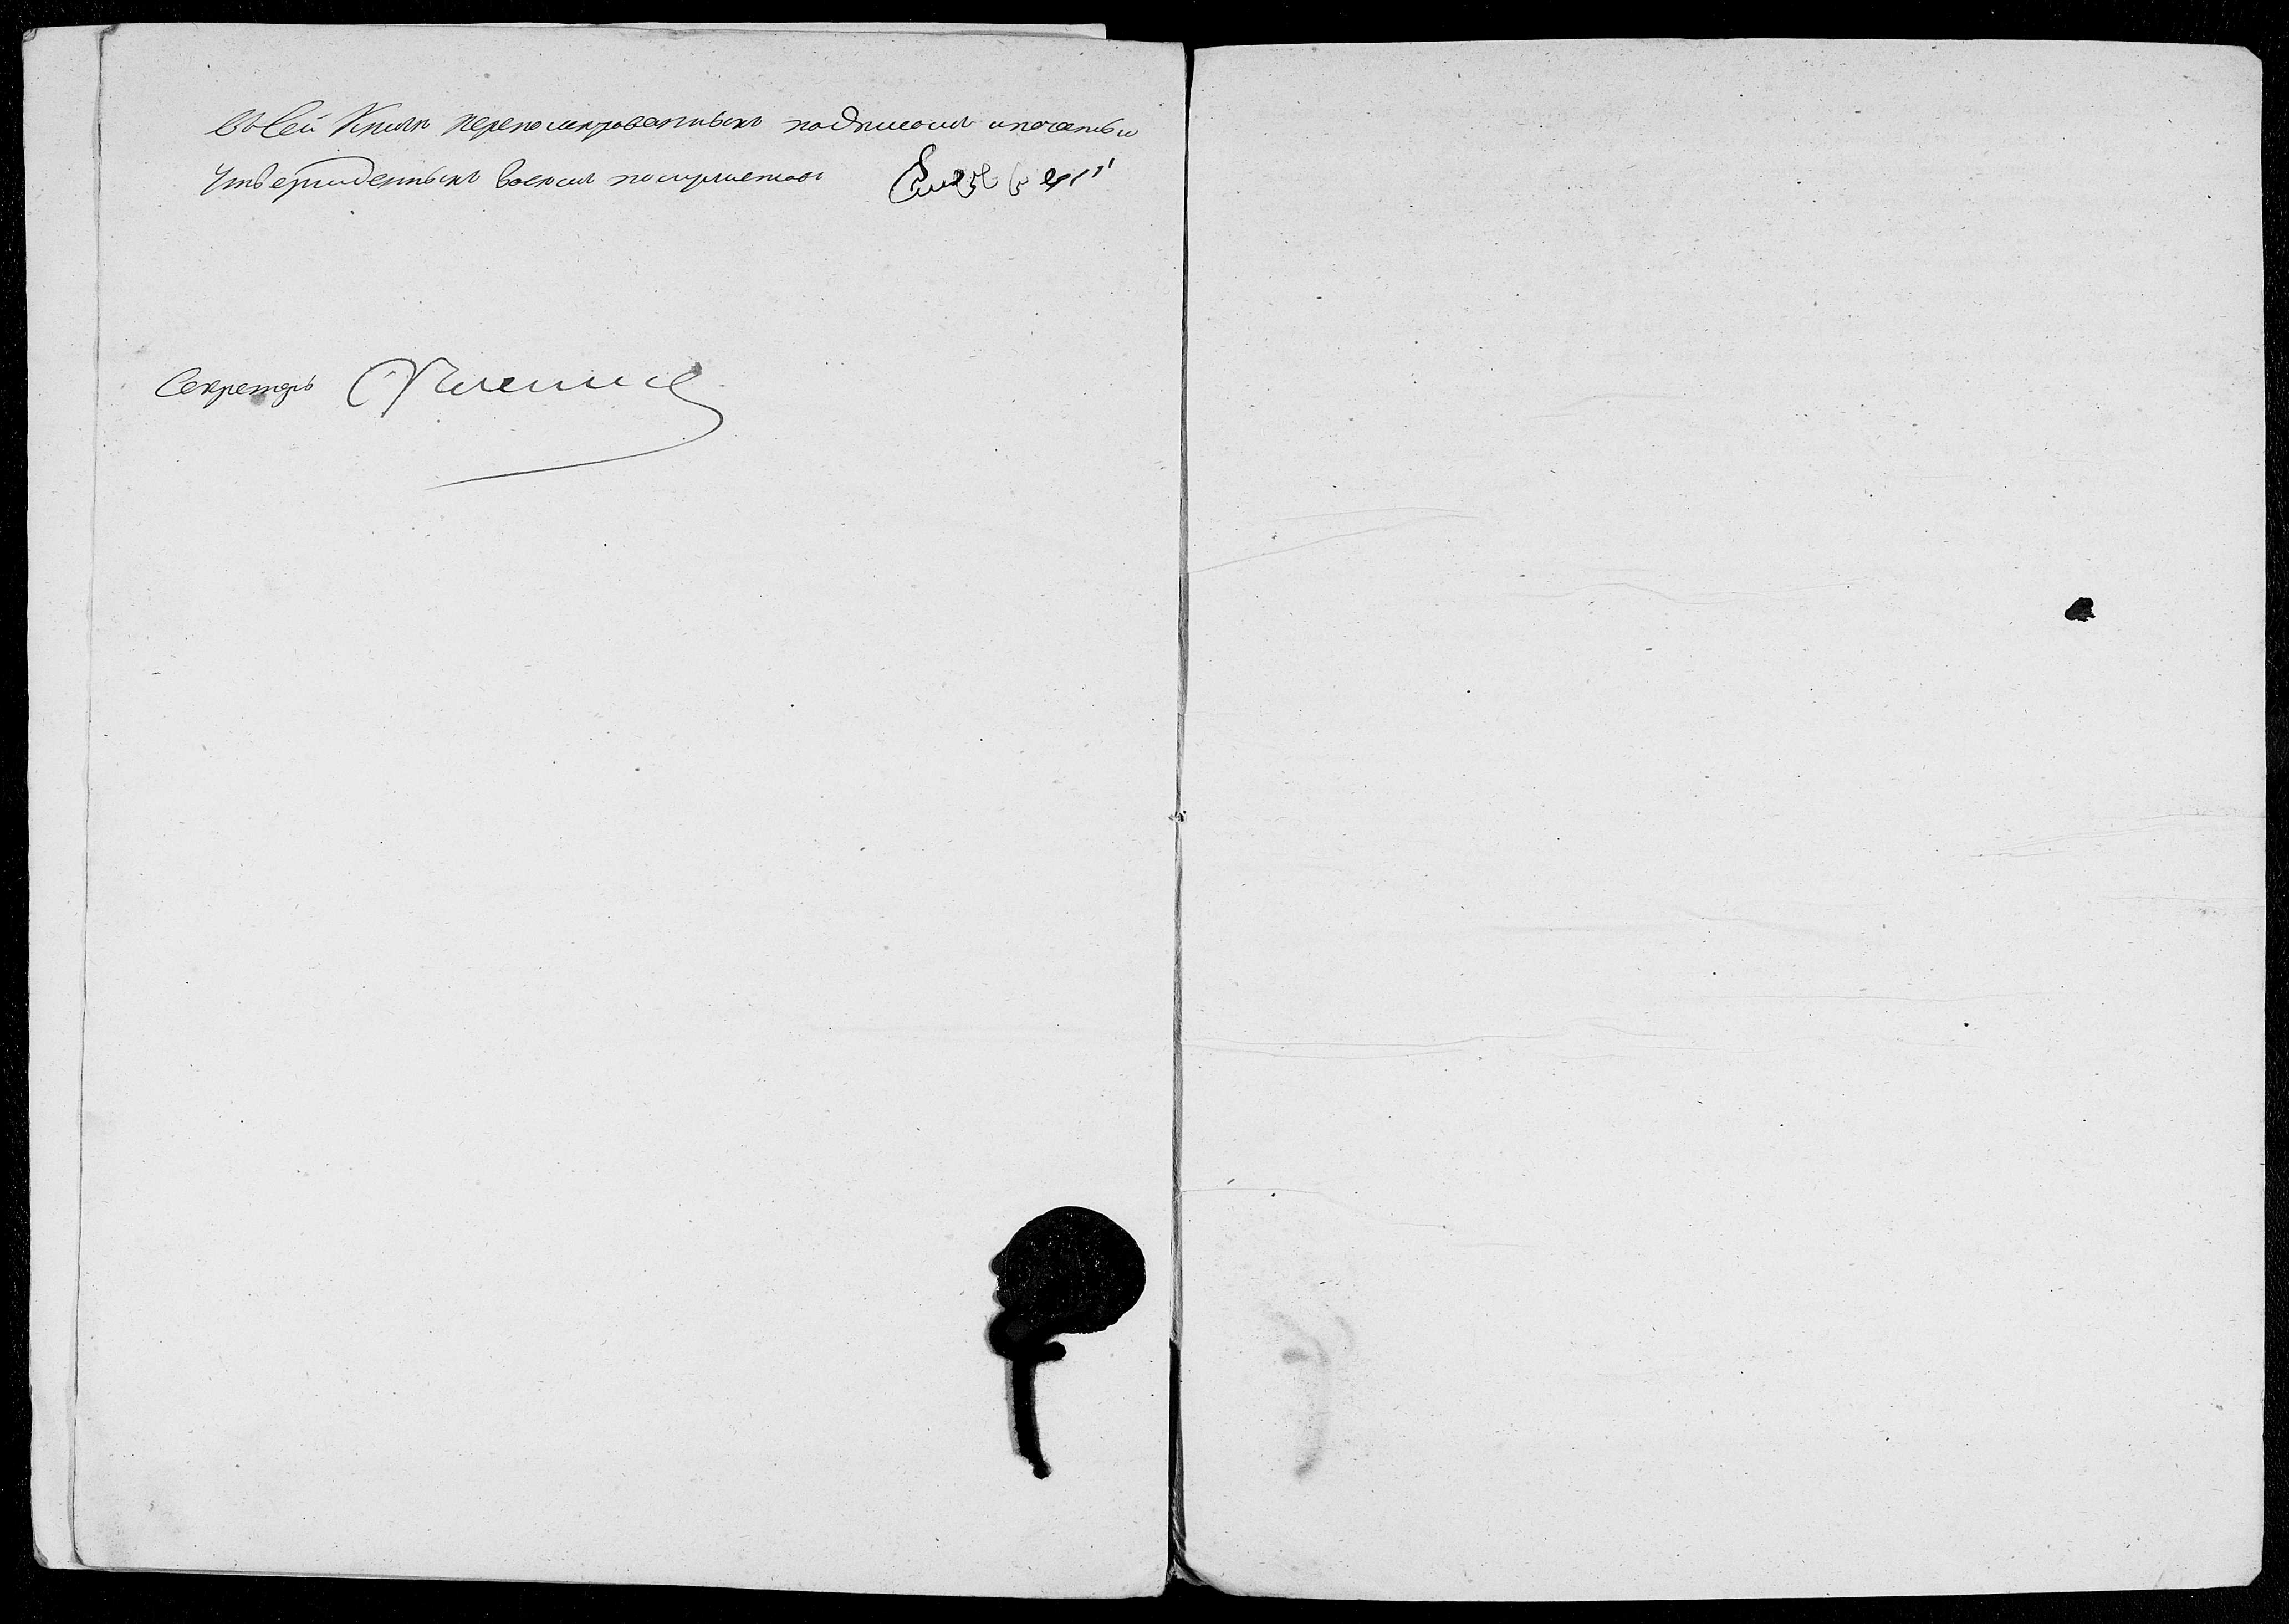 Въ сей Книге перенумерованныхъ подписомъ и печатью
Утвержденныхъ восемь полулистовъ
Секретарь